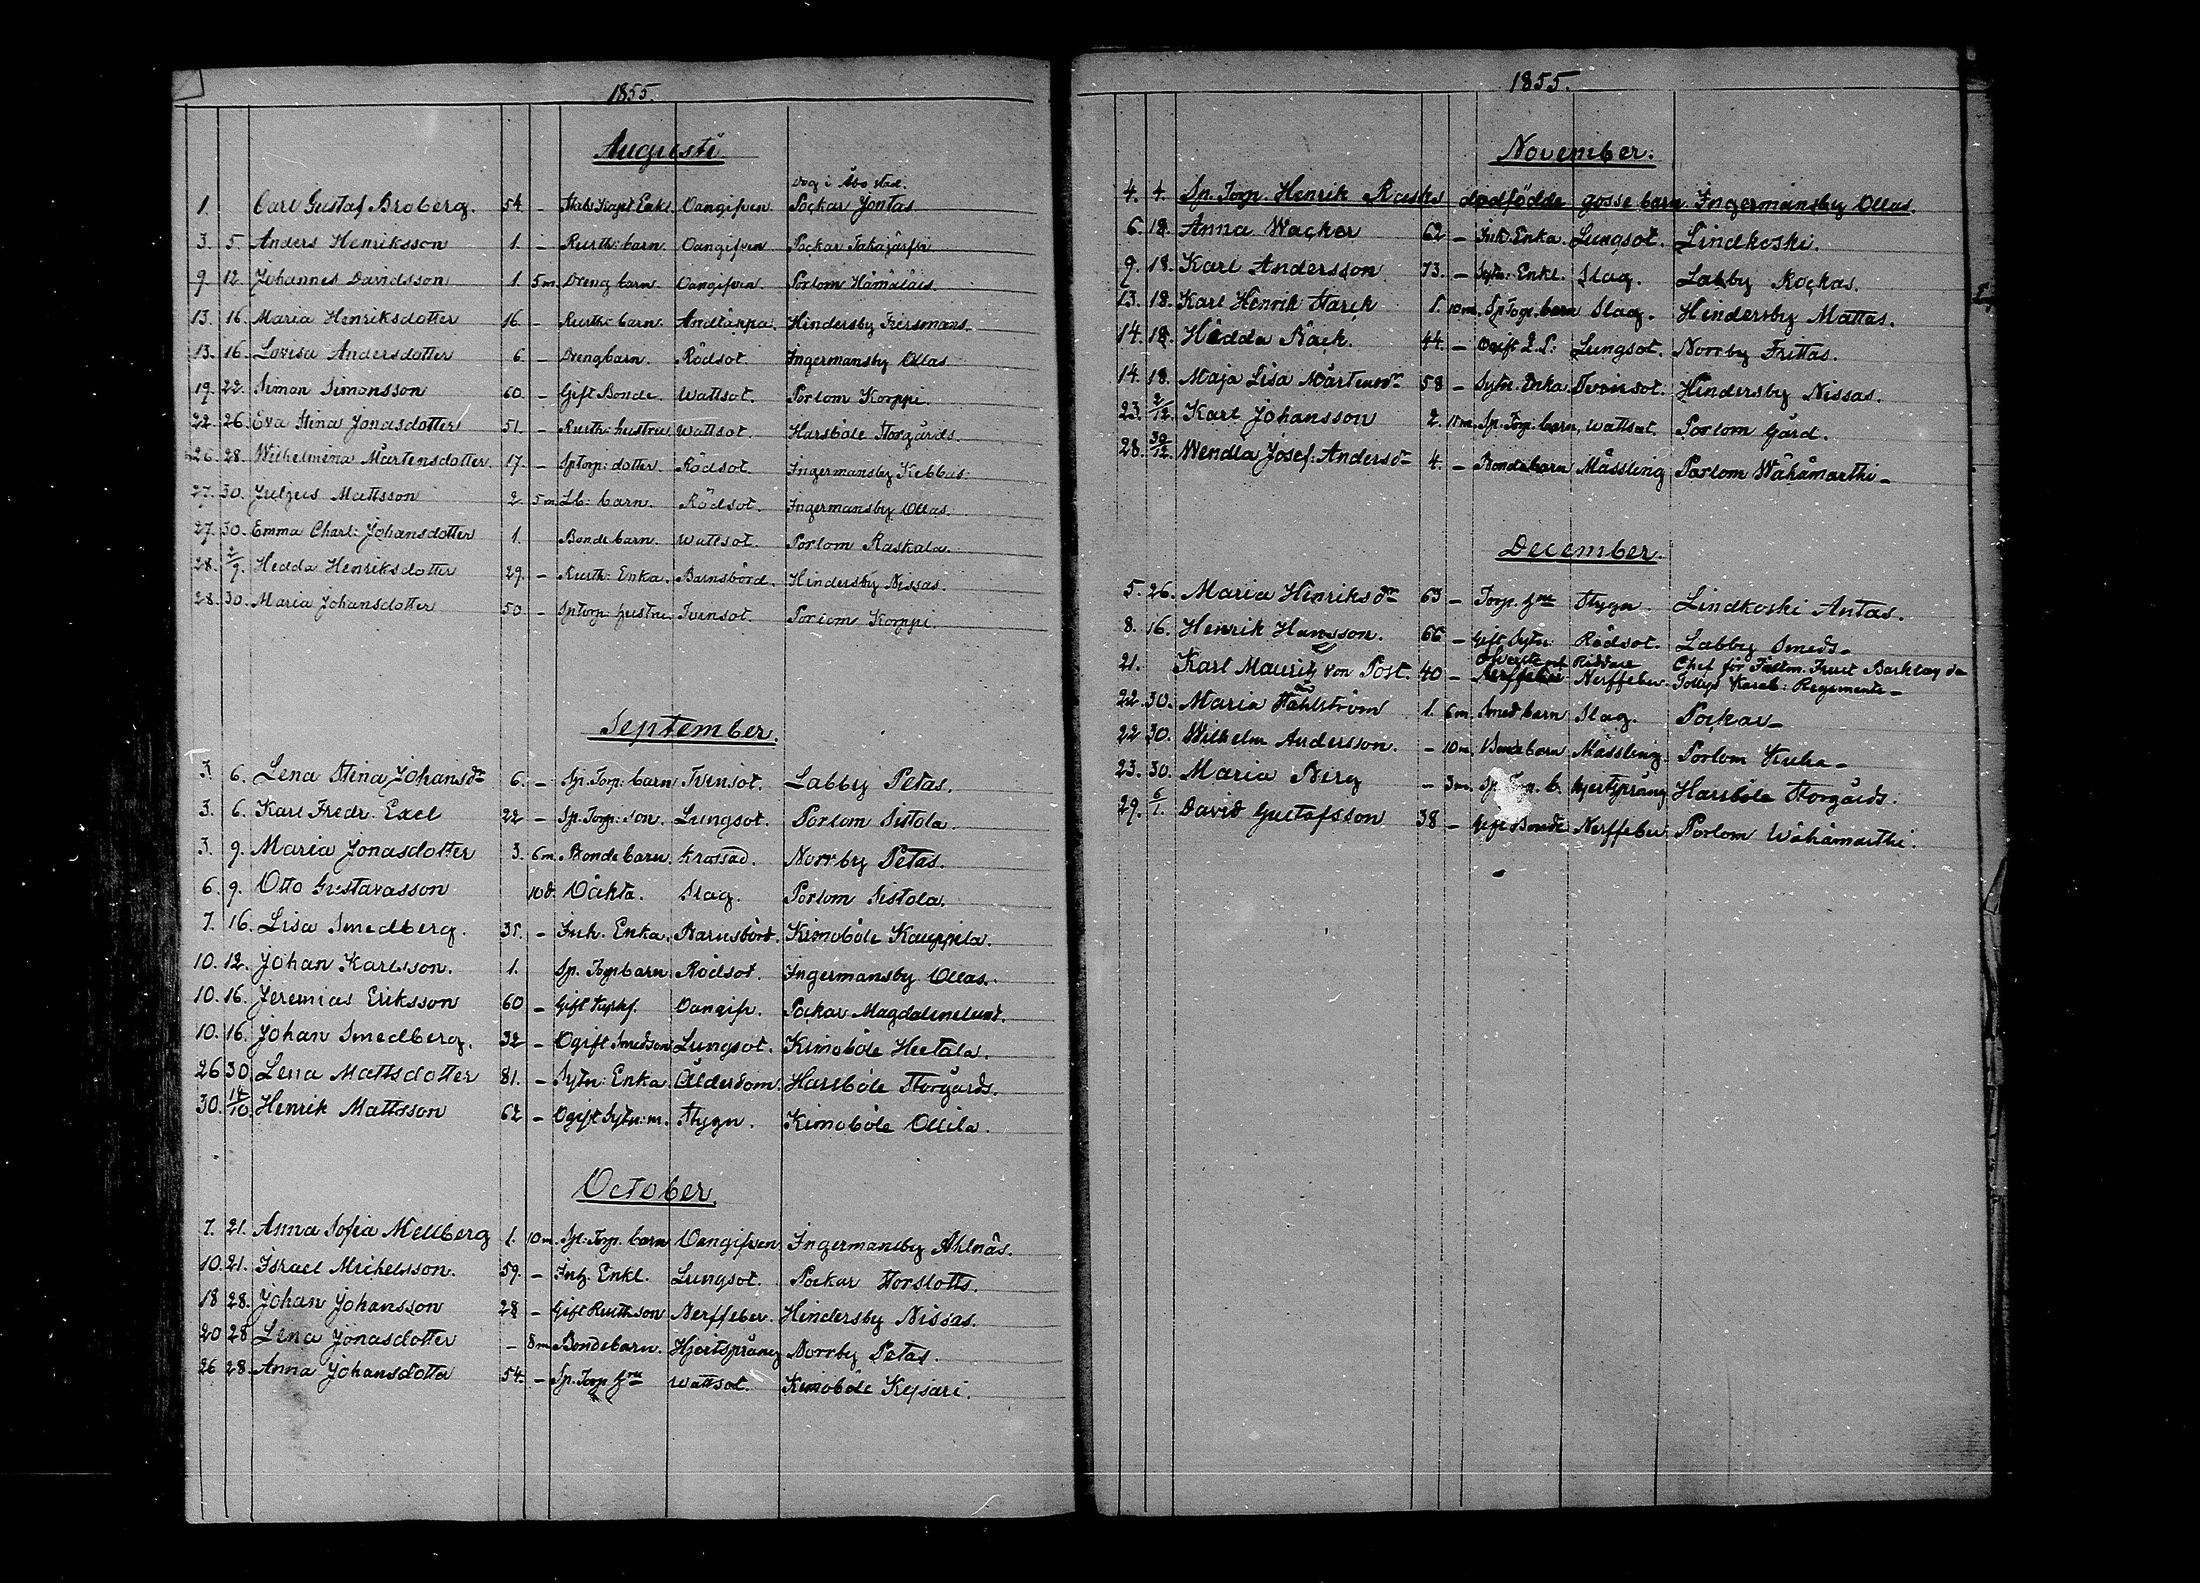 1855.
Augusti
dog i Åbo stad.
1. Carl Gustaf Broberg. 54 – Stabs Kapt. Enkl. Oangifven Pockar Jontas
3. 5. Anders Henriksson 1. – Rusth: barn. Oangifven Pockar Takajärfvi
9. 12. Johannes Davidsson 1. 5m Dreng barn. Oangifven Porlom Hämäläis.
13. 16. Maria Henriksdotter 16 – Rusth: barn. Andtäppa. Hindersby Friismans.
13. 16. Lovisa Andersdotter 6 – Drengbarn. Rödsot. Ingermansby Ollas
19. 22. Simon Simonsson 60. – Gift Bonde. Wattsot. Porlom Korppi.
22. 26. Eva Stina Jonasdotter 51. – Rusth: hustru Wattsot. Harsböle Storgårds.
26. 28. Wilhelmina Mårtensdotter. 17. – Sptorp: dotter. Rödsot. Ingermansby Kebbus.
27. 30. Julius Mattsson 2 5m Lb: barn. Rödsot. Ingermansby Ollas.
27. 30. Emma Charl: Johansdotter 1. Bonde barn. Wattsot. Porlom Raskala.
28. 2/9. Hedda Henriksdotter 29. – Rusth: Enka. Barnsbörd. Hindersby Nissas.
28. 30. Maria Johansdotter 50 – Sptorp: hustru. Tvinsot. Porlom Korppi.
September.
3. 6. Lena Stina Johansdr 6. – Sp. Torp: barn Tvinsot. Labby Petas.
3. 6. Karl Fredr. Exel 22 – Sp. Torp: son. Lungsot. Porlom Sistola.
3. 9. Maria Jonasdotter 3. 6m. Bonde barn. Krossad. Norrby Petas.
6. 9. Otto Gustavasson 10d. Oäkta. Slag. Porlom Sistola.
7. 16. Lisa Smedberg. 35. – Inh. Enka. Barnsbörd. Kimoböle Kauppila.
10. 12. Johan Karlsson. 1. Sp. Torpbarn Rödsot. Ingermansby Ollas.
10. 16. Jeremias Eriksson 60 – Gift Oangifv. Pockar Magdalenelund.
10. 16. Johan Smedberg. 32 – Ogift Smedson Lungsot. Kimoböle Heetala.
26 30. Lena Mattsdotter 81. – Sytn: Enka Ålderdom. Harsböle Storgårds.
30. 14/10 Henrik Mattsson 62 – Ogift Sytn: m. Stygn. Kimoböle Ollila.
October.
7. 21. Anna Sofia Mellberg 1. 10m. Sp: Torp. barn Oangifven Ingermansby Ahlnäs.
10. 21. Israel Michelsson. 59. – Inh. Enkl. Lungsot. Pockar Storslotts.
18 28. Johan Johansson 28 – Gift Rusth son Nerffeber. Hindersby Nissas.
20 28 Lena Jonasdotter – 8m Bondebarn. Hjertsprång Norrby Petas.
26 28. Anna Johansdotter 54. – Sp. Torp hru Wattsot. Kimoböle Kejsari.
1855.
November.
4. 4. Sp. Torp. Henrik Rasks dödfödde gosse barn. Ingermansby Ollas.
6. 18. Anna Wacker 62 – Inh: Enka. Lungsot. Lindkoski.
9. 18. Karl Andersson 73. – Sytn: Enkl. Slag. Labby Rockas.
13. 18. Karl Henrik Starck 1. 10m. Sp Torp. barn Slag. Hindersby Mattas.
14. 18. Hedda Bäck. 44. – Ogift Lungsot. Norrby Frittas.
14. 18. Maja Lisa Mårtensdr 58 – Sytn. Enka Tvinsot. Hindersby Nissas.
23. 2/12. Karl Johansson 2. 11m. Sp. Torp. barn. Wattsot. Porlom Gård.
28. 30/12. Wendla Josef: Andersdr 4. – Bondebarn Mässling Porlom Wähämarthi –
December.
5. 26. Maria Henriksdr 63 – Torp. hru Stygn. Lindkoski Antas.
8. 16. Henrik Hansson. 66 – Gift Sytn: Rödsot. Labby Smeds –
21. Karl Mauritz von Post. 40 – Öfverste och Riddare Nerffeber. Chef för Barklay de Tollys Karab: Regemente –
22 30. Maria Stählström 1. 6m. Smed barn Slag. Pockar –
22 30. Wilhelm Andersson. – 10m. Bondebarn Mässling Porlom Kuha –
23. 30. Maria Berg – 3m. Sp. b. Hjertsprång Harsböle Storgårds.
29. 6/1. David Gustafsson 38 – Gift Bonde Nerffeber Porlom Wähämarthi.